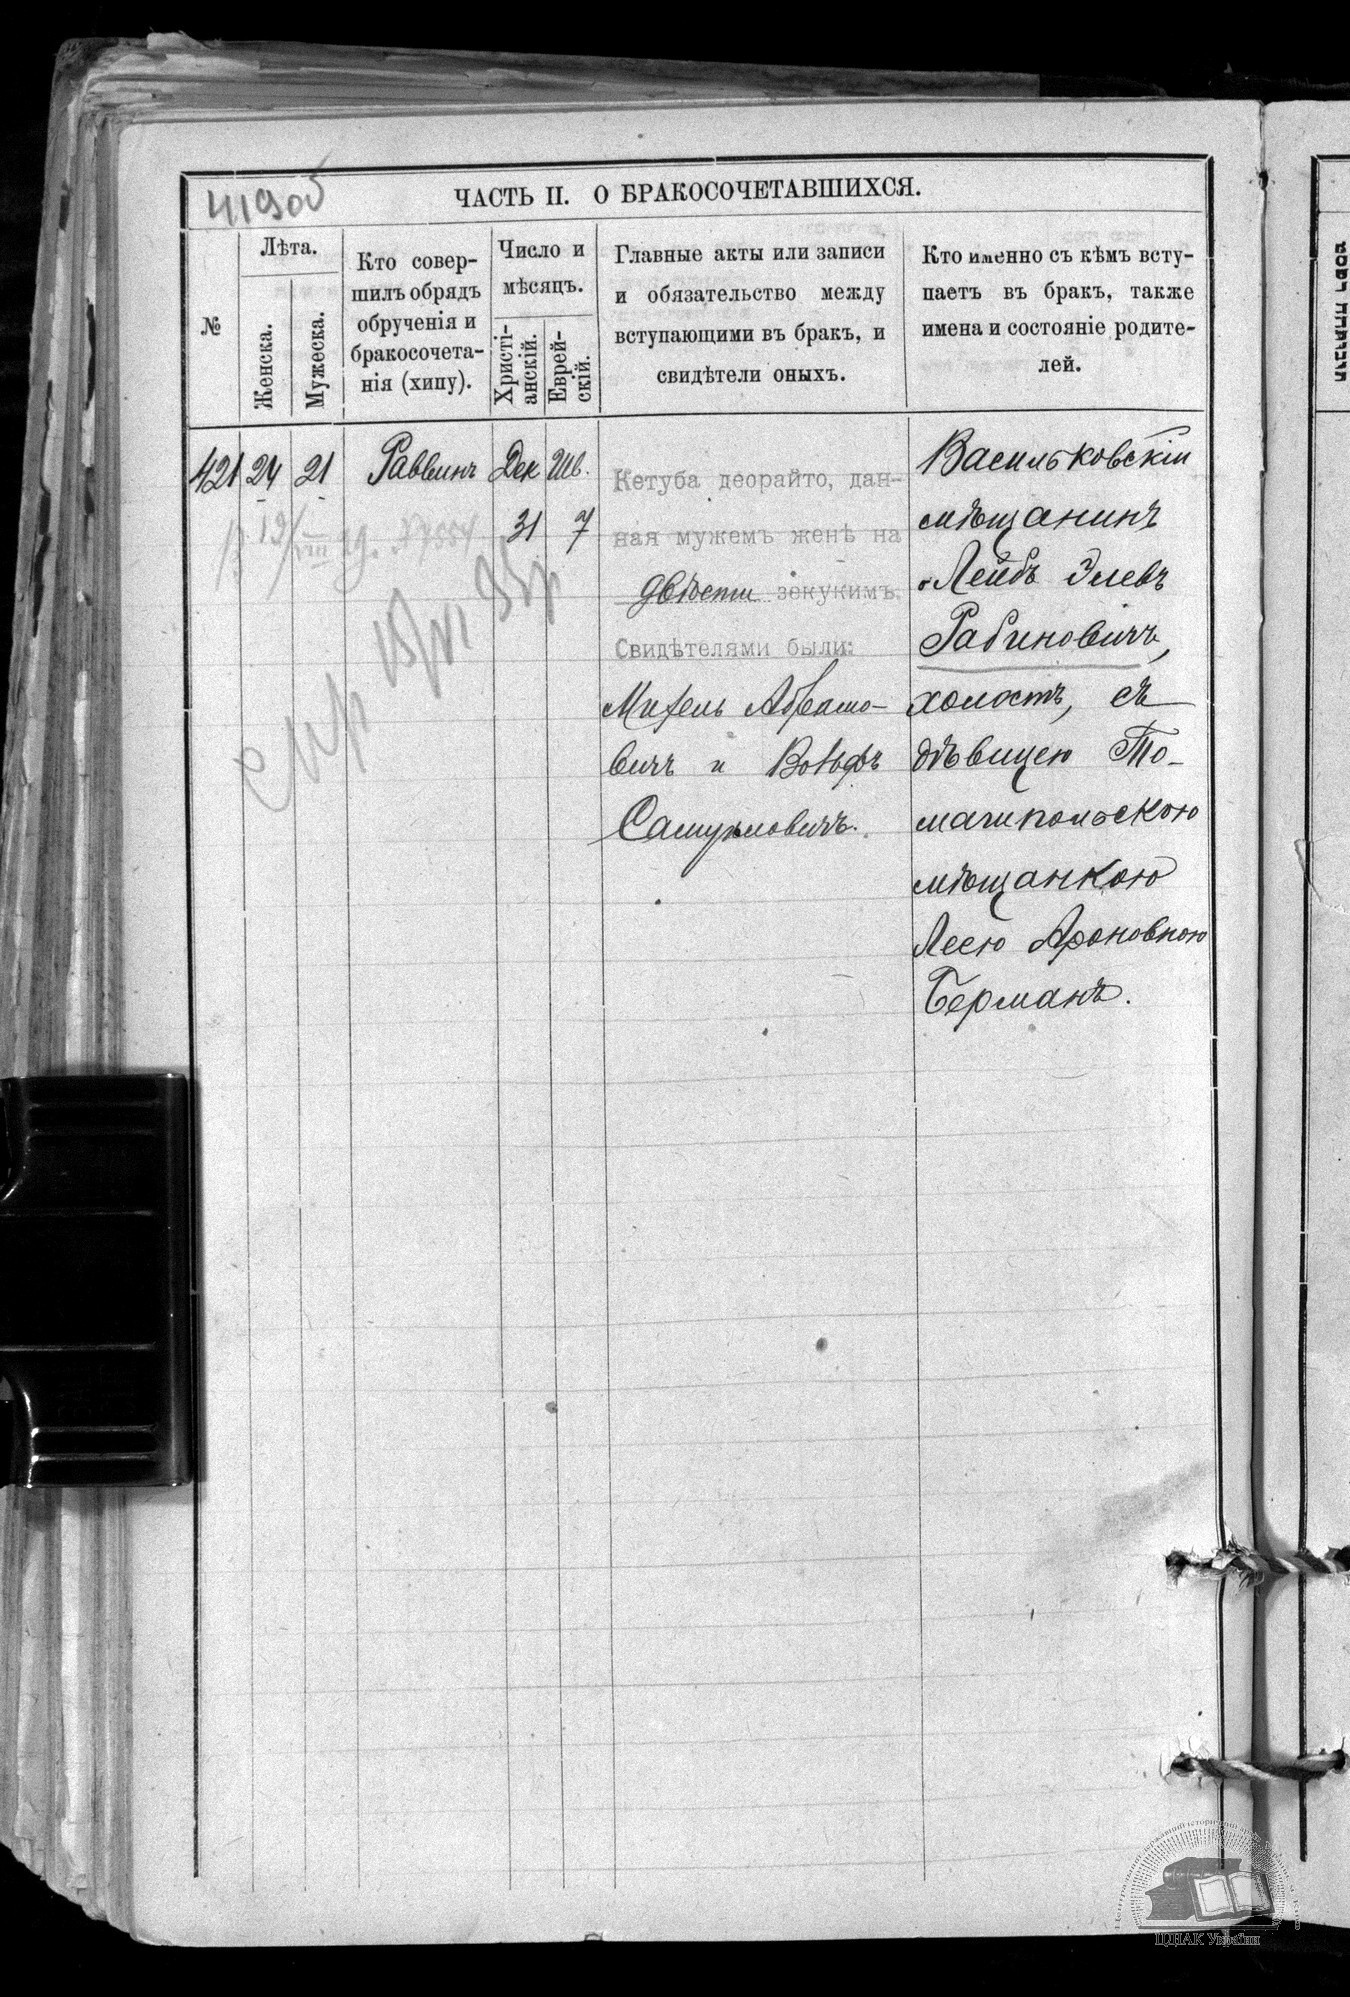 41905
ЧАСТЬ II. О БРАКОСОЧЕТАВШИХСЯ.
№
Лѣта.
Женска.
Мужеска.
Кто совер-
шилъ обрядъ
обрученія и
бракосочета-
нія (хипу).
Число и
мѣсяцъ.
Христі-
анскій.
Еврей-
скій.
Главные акты или записи
и обязательство между
вступающими въ бракъ, и
свидѣтели оныхъ.
Кто именно съ кѣмъ всту-
паетъ въ бракъ, также
имена и состояніе родите-
лей.
421 24 21 Раввинъ Дек Шв.
31 7
Кетуба деорайто, дан-
ная мужемъ женѣ на
двѣсти зекукимъ.
Свидѣтелями были:
Михель Абрамо-
вичъ и Вольфъ
Самуиловичъ.
Васильковскій
мѣщанинъ
Лейбъ Элевъ
Рабиновичъ,
холостъ, съ
дѣвицею То-
машпольскою
мѣщанкою
Леею Ароновною
Берманъ.
ЦДІАК України